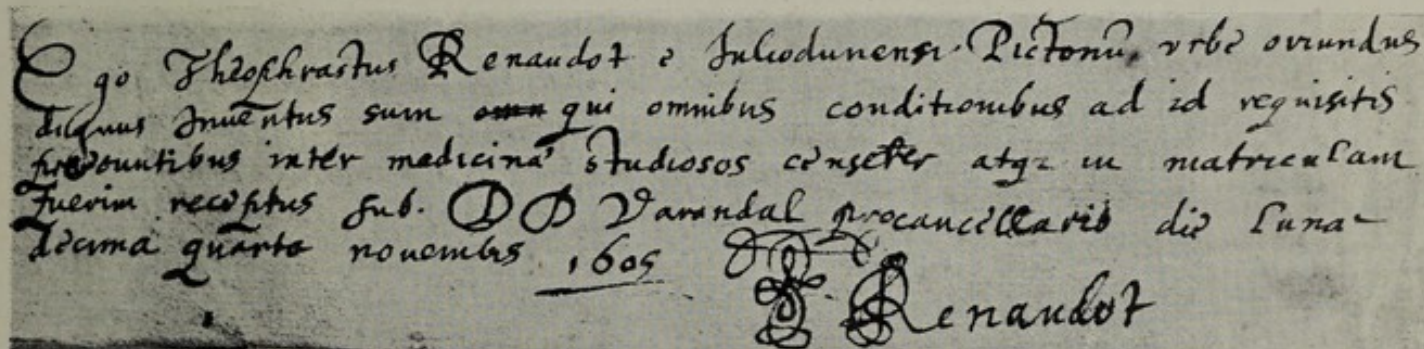 Ego Theophrastus Renaudot e Juliodunensi Pictonū, vrbe oriundus
dignus Inuentus sum qui omnibus conditionibus ad id requisitis
preeuntibus inter medicinæ studiosos censeter atqz in matriculam
fuerim receptus sub. D D Varandal procancellario die Lunæ
decima quarto nouembris 1605
T. Renaudot